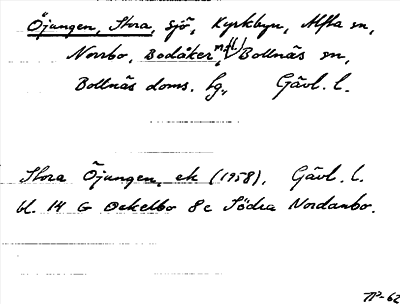 Öjungen, Stora, sjö, Kyrkbyn, Alfta sn,
Norrbo, Bodåker m.fl., Bollnäs sn,
Bollnäs doms. hg, Gävl. l.
Stora Öjungen, ek (1958), Gävl. l.
bl. 14 G Ockelbo 8 c Södra Nordanbo.
-62